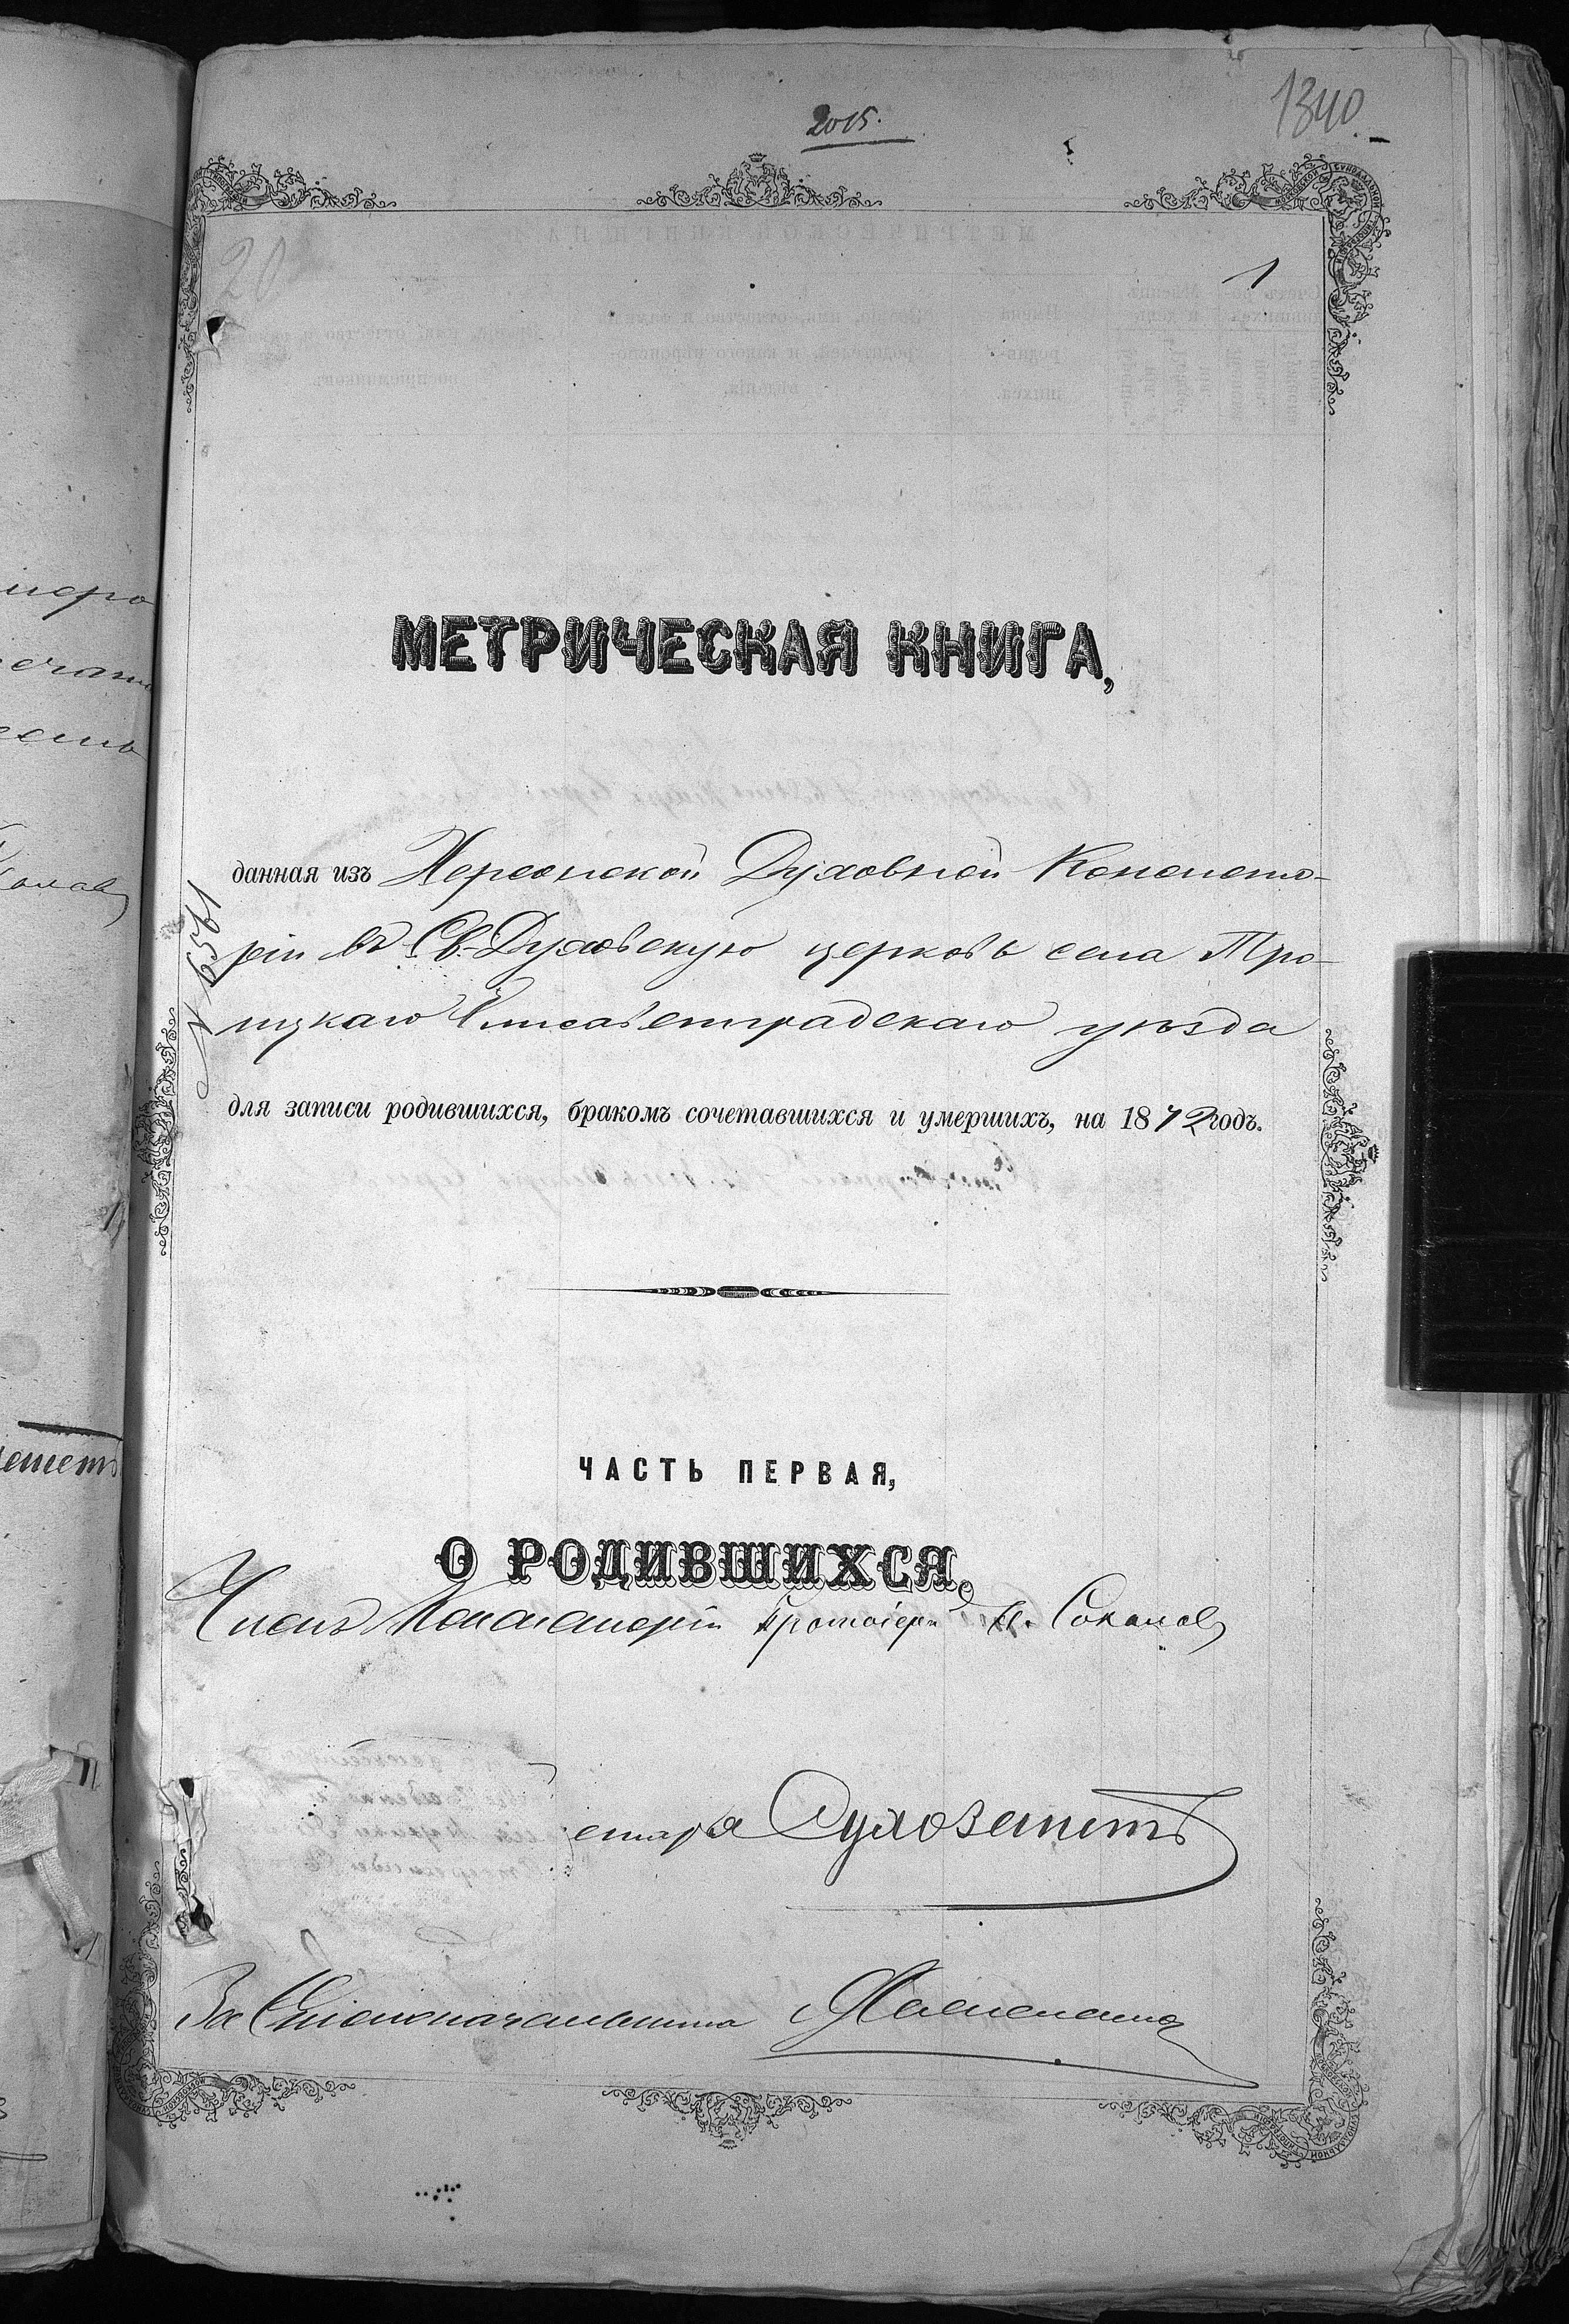 1340
2015.
20
1
МЕТРИЧЕСКАЯ КНИГА,
данная изъ Херсонской Духовной Консисто-
ріи въ Св-Духовскую церковь села Тро-
ицкаго Елисаветградскаго уѣзда
№ 6561
для записи родившихся, бракомъ сочетавшихся и умершихъ, на 1872 годъ.
ЧАСТЬ ПЕРВАЯ,
О РОДИВШИХСЯ.
Членъ Консисторіи Протоіерей Соколов
старя
За Столоначальника